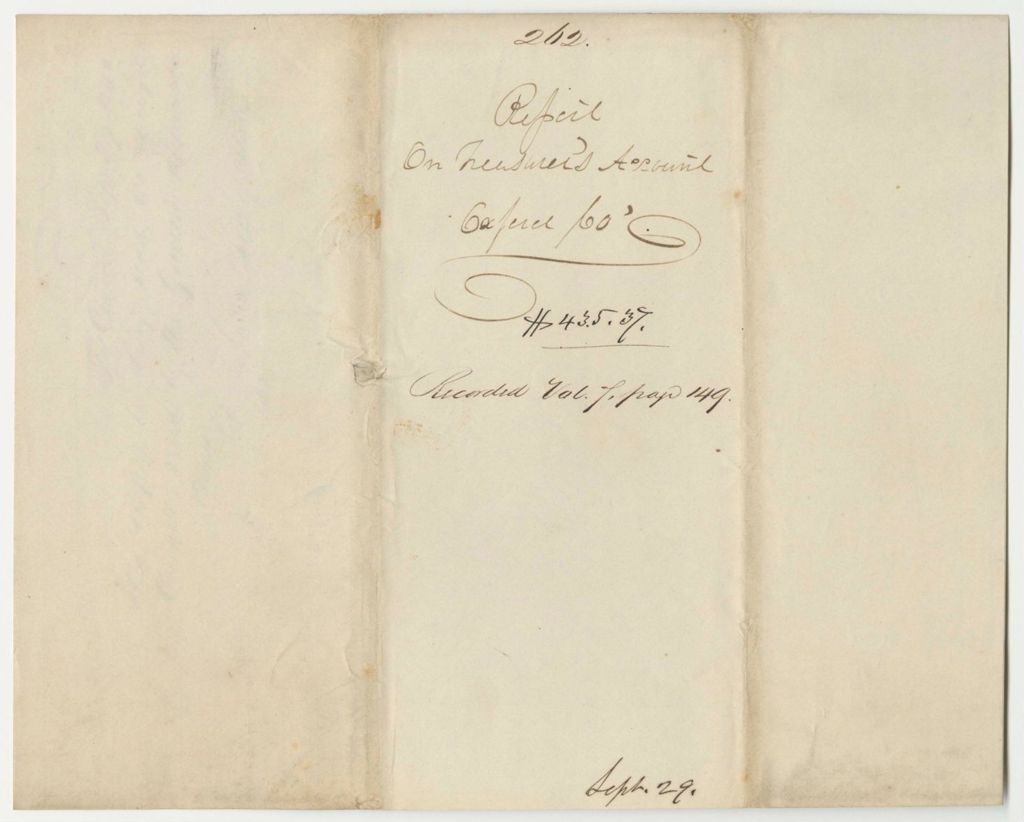 262.
Report
On Treasurer's Account
Oxford Co'
$435.37.
Recorded Vol. 7, page 149.
Sept. 29.